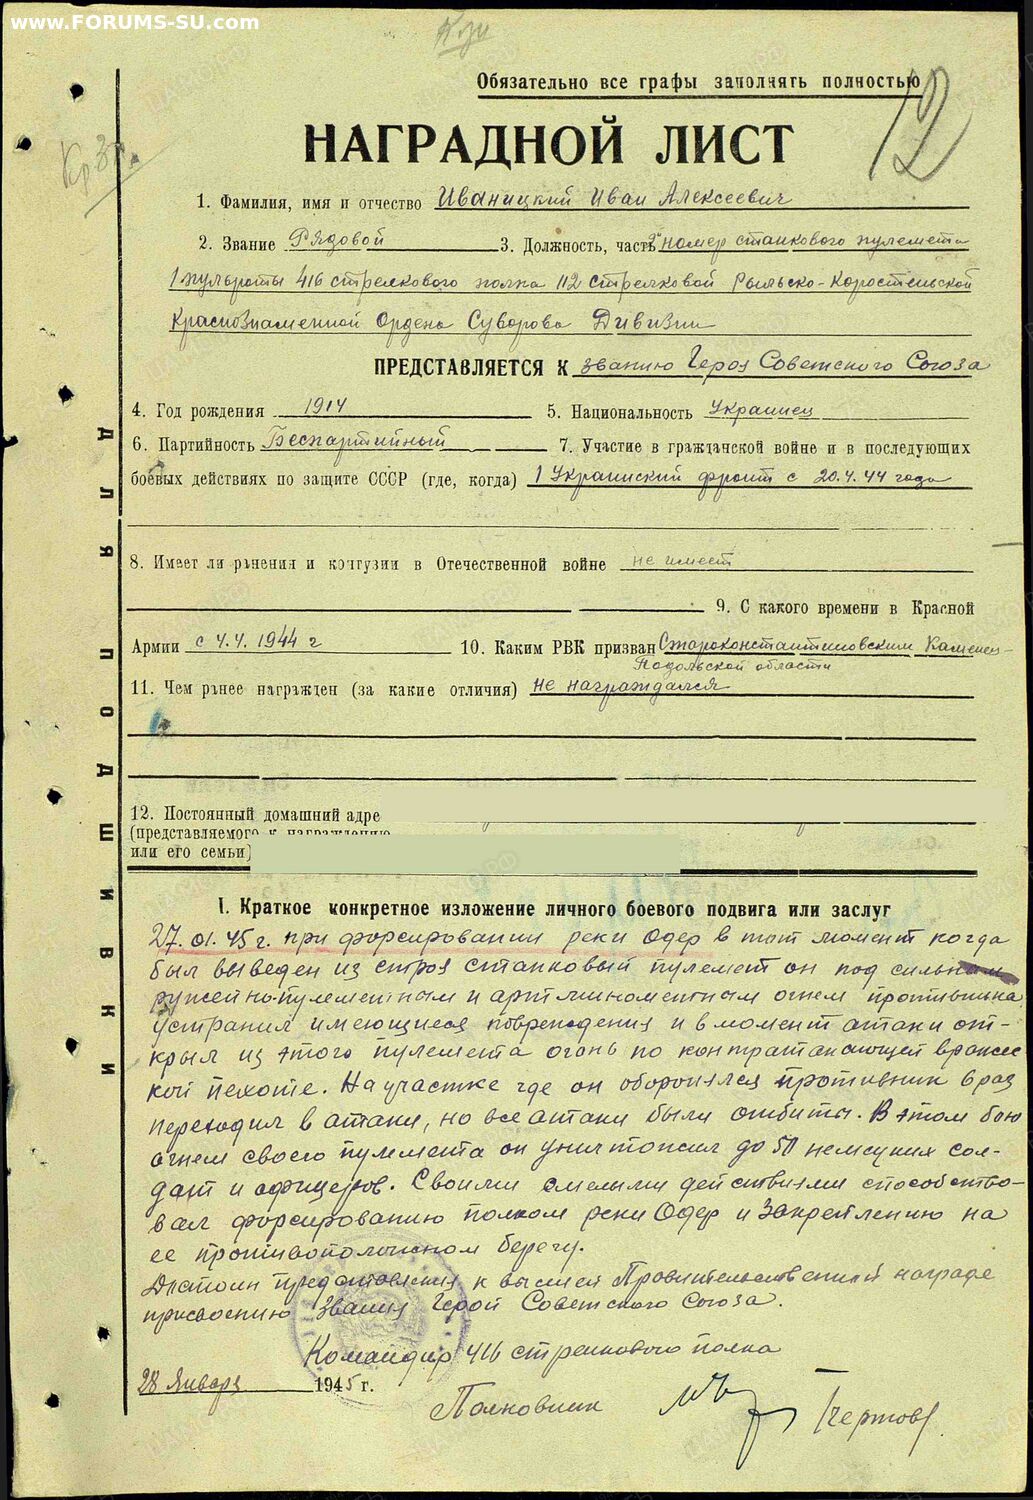 www.FORUMS-SU.com
12
Обязательно все графы заполнять полностью
НАГРАДНОЙ ЛИСТ
1. Фамилия, имя и отчество Иваницкий Иван Алексеевич
2. Звание Рядовой 3. Должность, часть 2й номер станкового пулемета
1 пульроты 416 стрелкового полка 112 стрелковой Рыльско-Коростеньской
Краснознаменной Ордена Суворова Дивизии
ПРЕДСТАВЛЯЕТСЯ К званию Героя Советского Союза
4. Год рождения 1914 5. Национальность Украинец
6. Партийность Беспартийный 7. Участие в гражданской войне и в последующих
боевых действиях по защите СССР (где, когда) 1 Украинский фронт с 20.4.44 года
8. Имеет ли ранения и контузии в Отечественной войне не имеет
9. С какого времени в Красной
Армии с 4.4.1944 г 10. Каким РВК призван Староконстантиновским Каменец-
Подольской области
11. Чем ранее награжден (за какие отличия) не награждался
12. Постоянный домашний адре
(представляемого к награждению
или его семьи)
ДЛЯ ПОДШИВКИ
I. Краткое конкретное изложение личного боевого подвига или заслуг
27.01.45 г. при форсировании реки Одер в тот момент когда
был выведен из строя станковый пулемет он под сильным
ружейно-пулеметным и артминометным огнем противника
устранил имеющиеся повреждения и в момент атаки от-
крыл из этого пулемета огонь по контратакующей вражес
кой пехоте. На участке где он оборонялся противник 6 раз
переходил в атаки, но все атаки были отбиты. В этом бою
огнем своего пулемета он уничтожил до 50 немецких сол-
дат и офицеров. Своими смелыми действиями способство-
вал форсированию полком реки Одер и закреплению на
ее противоположном берегу.
Достоин представления к высшей Правительственной награде
присвоению звания Герой Советского Союза.
Командир 416 стрелкового полка
28 Января 1945 г.
Полковник Чертов